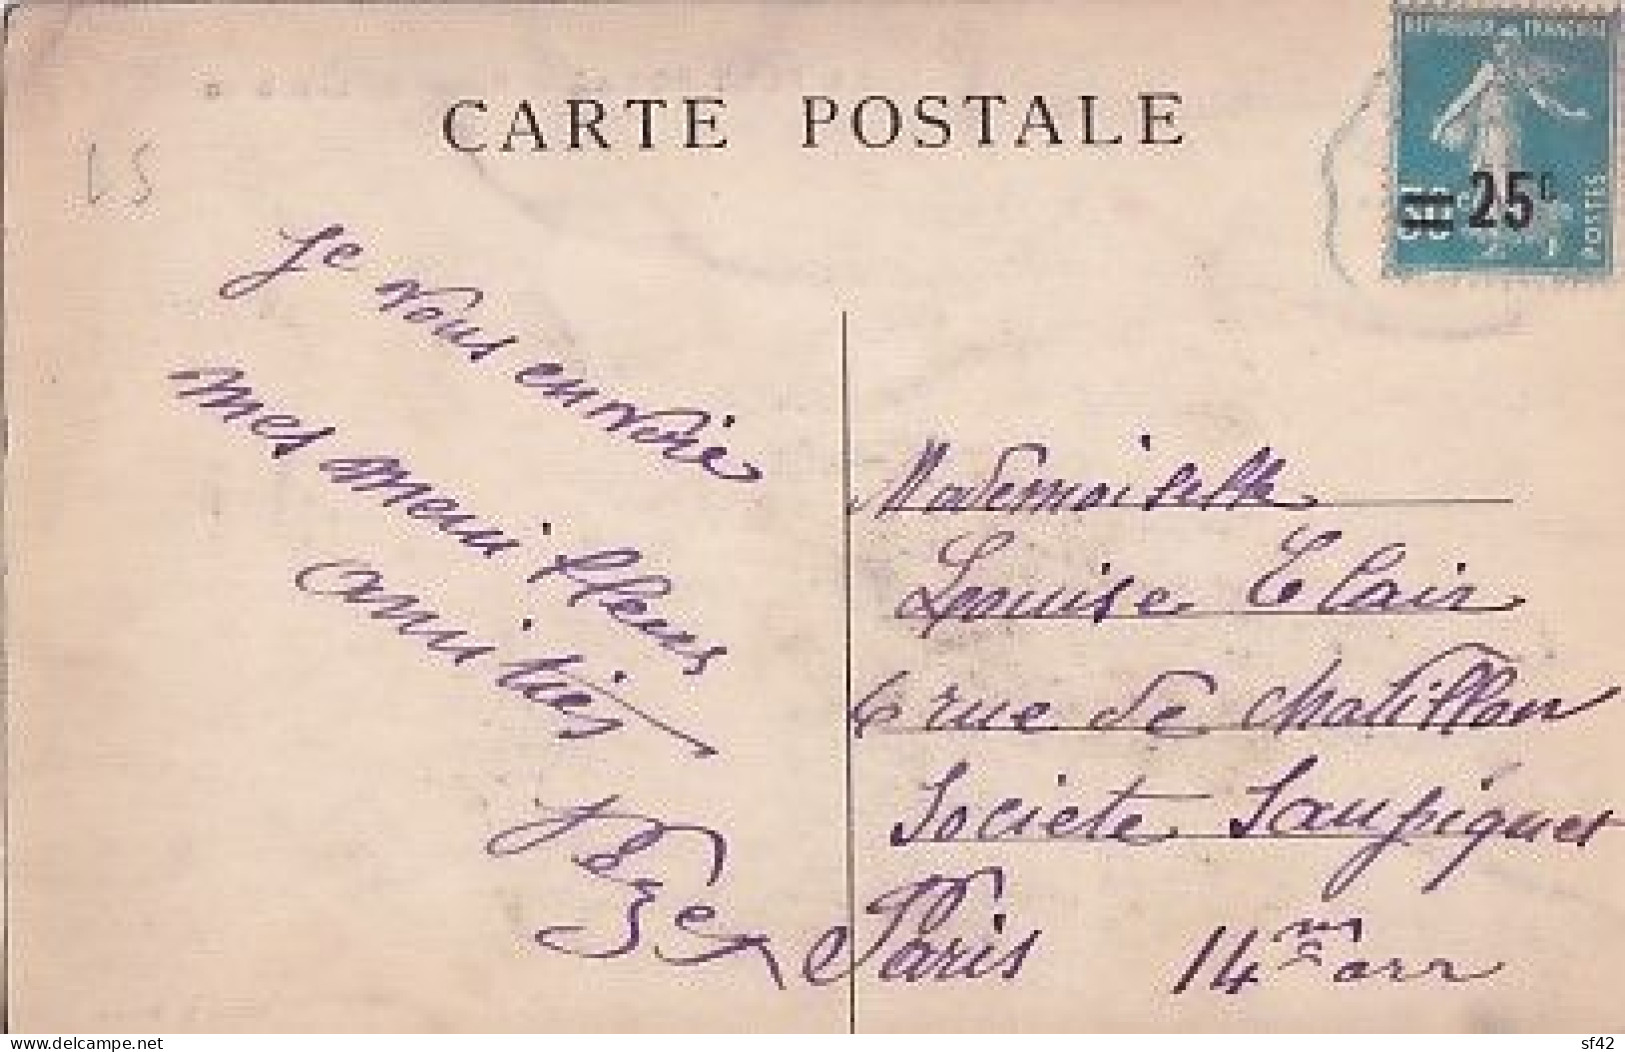 CARTE POSTALE
REPUBLIQUE FRANÇAISE
25c
POSTES
LS
Je vous envoie
mes meilleurs
amitiés
Mademoiselle
Louise Clair
6 rue de Chatillon
Societe Saupiquet
Paris 14me arr
delcampe.net
sf42